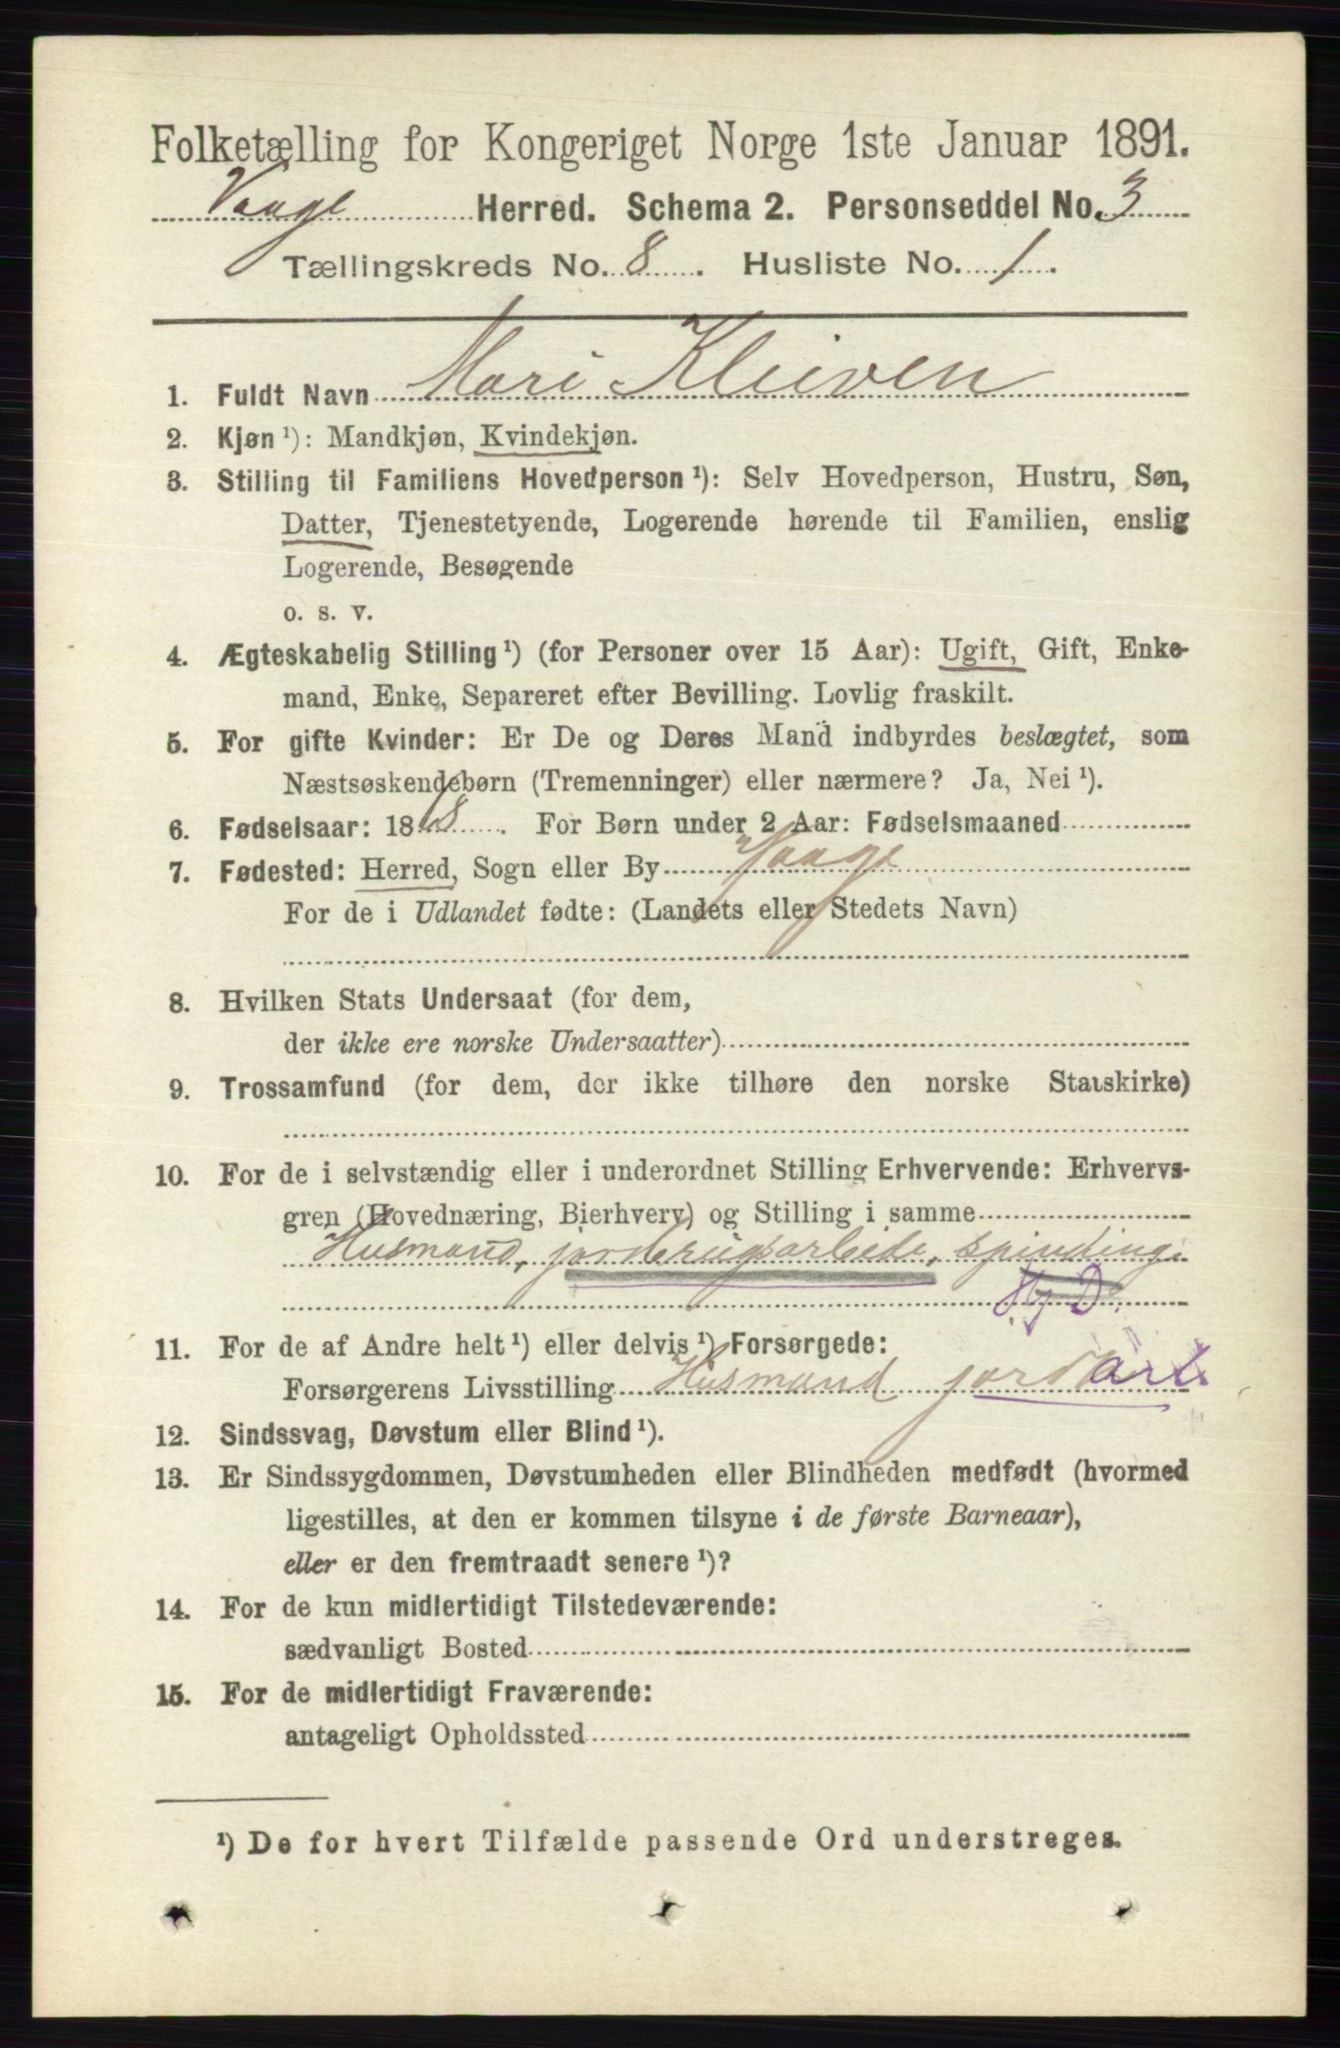 Folketælling for Kongeriget Norge 1ste Januar 1891.
Vaage Herred. Schema 2. Personseddel No. 3
Tællingskreds No. 8. Husliste No. 1.
1. Fuldt Navn Mari Kleiven
2. Kjøn ¹): Mandkjøn, Kvindekjøn.
3. Stilling til Familiens Hovedperson ¹): Selv Hovedperson, Hustru, Søn,
Datter, Tjenestetyende, Logerende hørende til Familien, enslig
Logerende, Besøgende
o. s. v.
4. Ægteskabelig Stilling ¹) (for Personer over 15 Aar): Ugift, Gift, Enke-
mand, Enke, Separeret efter Bevilling. Lovlig fraskilt.
5. For gifte Kvinder: Er De og Deres Mand indbyrdes beslægtet, som
Næstsøskendebørn (Tremenninger) eller nærmere? Ja, Nei ¹).
6. Fødselsaar: 1868. For Børn under 2 Aar: Fødselsmaaned
7. Fødested: Herred, Sogn eller By Vaage
For de i Udlandet fødte: (Landets eller Stedets Navn)
8. Hvilken Stats Undersaat (for dem,
der ikke ere norske Undersaatter)
9. Trossamfund (for dem, der ikke tilhøre den norske Statskirke)
10. For de i selvstændig eller i underordnet Stilling Erhvervende: Erhvervs-
gren (Hovednæring, Bierhverv) og Stilling i samme
Husmand, jordbrugsarbeide, spinding.
11. For de af Andre helt ¹) eller delvis ¹) Forsørgede:
Forsørgerens Livsstilling Husmand jord arb.
12. Sindssvag, Døvstum eller Blind ¹).
13. Er Sindssygdommen, Døvstumheden eller Blindheden medfødt (hvormed
ligestilles, at den er kommen tilsyne i de første Barneaar),
eller er den fremtraadt senere ¹)?
14. For de kun midlertidigt Tilstedeværende:
sædvanligt Bosted
15. For de midlertidigt Fraværende:
antageligt Opholdssted
¹) De for hvert Tilfælde passende Ord understreges.